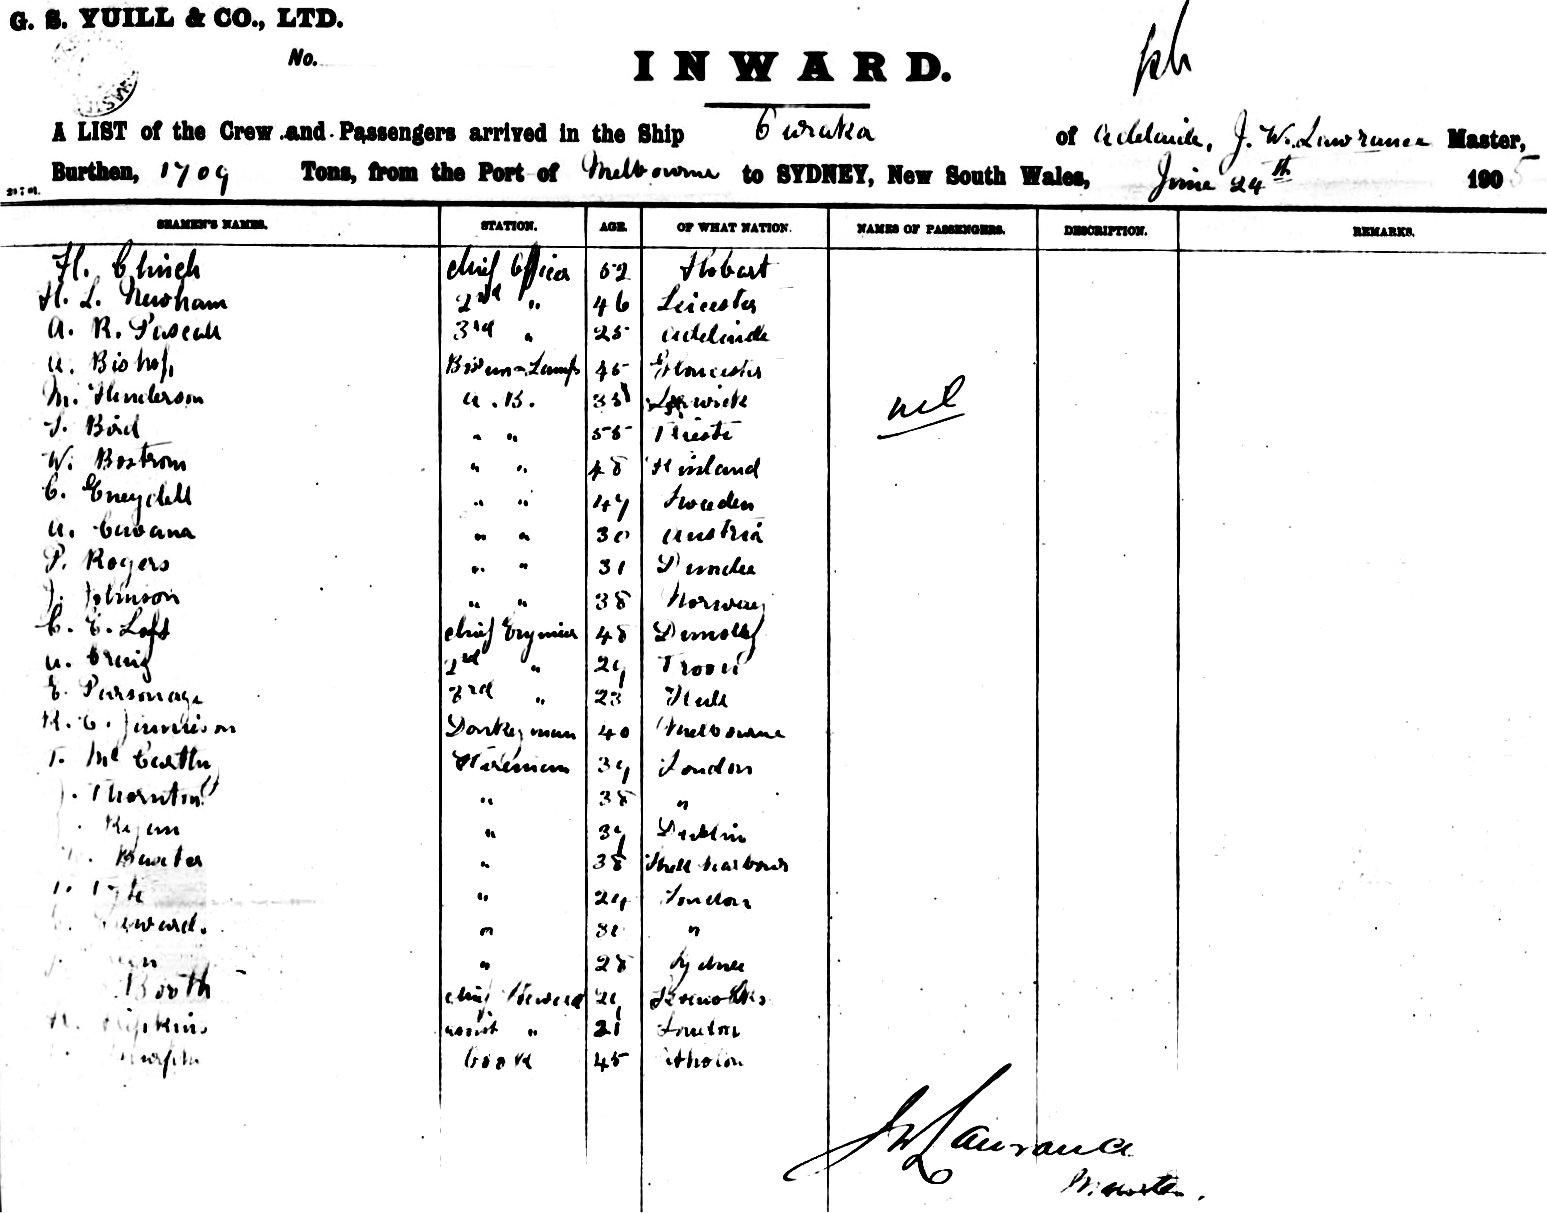 G. S. YUILL & CO., LTD.
No.
INWARD.
A LIST of the Crew and Passengers arrived in the Ship of Adelaide, J. W. Lawrance Master,
Burthen, 1709 Tons, from the Port of Melbourne to SYDNEY, New South Wales, June 24th 1905
SEAMEN'S NAMES. STATION. AGE. OF WHAT NATION. NAMES OF PASSENGERS. DESCRIPTION. REMARKS.
H. Clinch Chief Officer 52 Hobart
H. L. Newham 2nd " 46 Leicester
A. R. Pascall 3rd " 25 Adelaide
A. Bishop Bosun & Lamps 45 Gloucester
M. Henderson A.B. 38 Lerwick nil
Bird " " 55 Trieste
W. Bostrom " " 48 Finland
C. " " 47 Sweden
A. " " 30 Austria
P. Rogers " " 31 Dundee
J. Johnson " " 38 Norway
C. E. Loft Chief Engineer 48
A. Craig 2nd " 29 Troon
E. Parsonage 3rd " 23 Hull
R. C. Donkeyman 40 Melbourne
T. McCarthy Fireman 39 London
J. Thornton " 38 "
Ryan " 39 Dublin
" 38
" 24 London
" "
" 28 Sydney
Booth Chief Steward
Hipkins Assist " 21 London
Cook 45
J W Lawrance
Master.